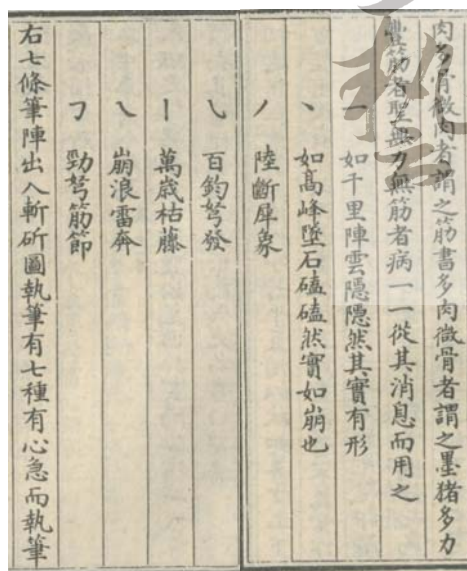 肉多骨微肉者謂之筋書多肉微骨者謂之墨猪多力
豊筋者聖無力無筋者病一一從其消息而用之
一 如千里陣雲隱隱然其實有形
丶 如高峰墜石磕磕然實如崩也
丿 陸斷犀象
㇂ 百鈞弩發
丨 萬歳枯藤
㇏ 崩浪雷奔
㇆ 勁弩筋節
右七條筆陣出入斬斫圖執筆有七種有心急而執筆